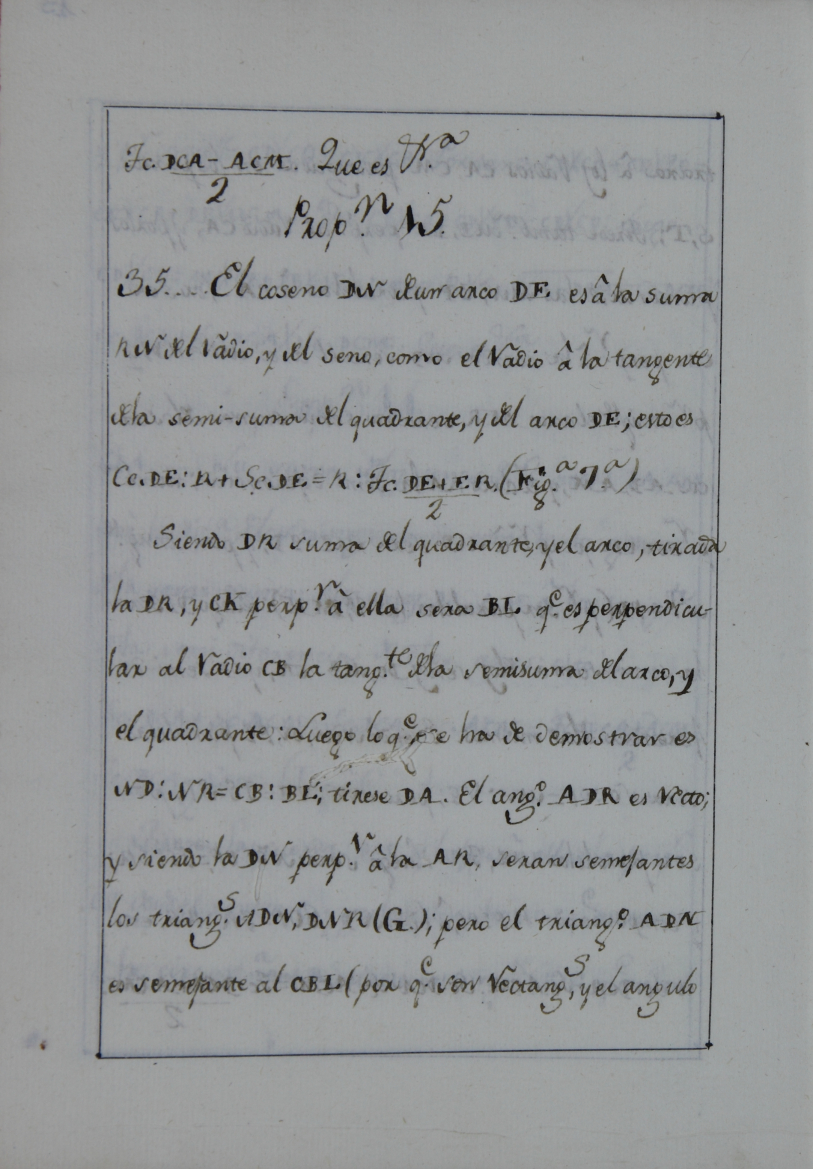 Tc. DCA - ACM. Que es Nª
2
Propⁿ. 15.
35.... El coseno DN deun arco DE es â la suma
RN del Rádio, y del seno, como el Rádio â la tangente
dela semi-suma del quadrante, y del arco DE; esto es
Cc. DE: R + Sc. DE = R: Tc. DE + ER. (Fig.ª 7.ª)
2
Siendo DR suma del quadrante, y el arco, tirada
la DR, y CK perp.ʳ â ella sera BL q.ᵉ es perpendicu-
lar al Radio CB la tang.ᵗᵉ dela semisuma del arco, y
el quadrante: Luego lo q.ᵉ se ha de demostrar es
ND: NR = CB: BL; tirese DA. El ang.º ADR es Recto;
y siendo la DN perp.ʳ â la AR, seran semejantes
los triang.ˢ ADN, DNR (G.); pero el triang.º ADN
es semejante al CBL (por q.ᵉ son Rectang.ˢ, y el angulo